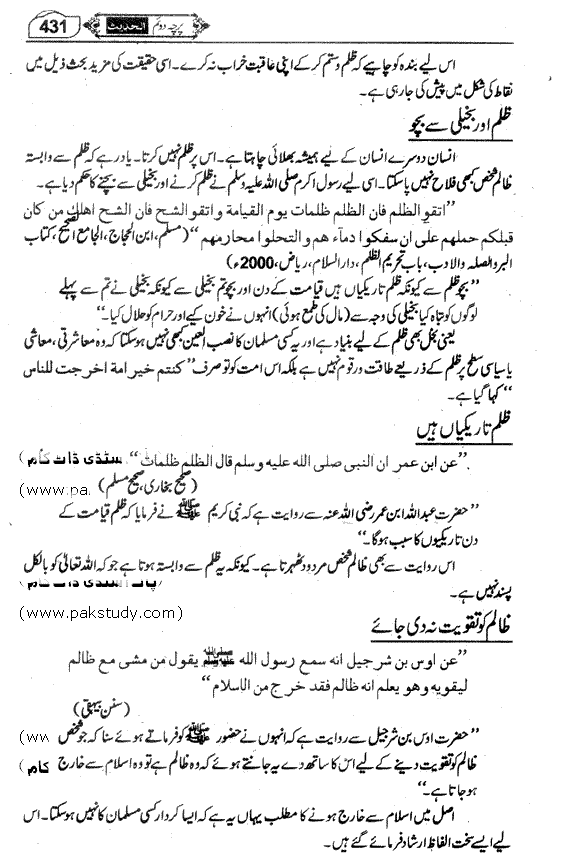 431 الحدیث پرچہ دوئم
اس لیے بندہ کو چاہیے کہ ظلم و ستم کر کے اپنی عاقبت خراب نہ کرے۔ اسی حقیقت کی مزید بحث ذیل میں
نقاط کی شکل میں پیش کی جا رہی ہے۔
ظلم اور بخیلی سے بچو
انسان دوسرے انسان کے لیے ہمیشہ بھلائی چاہتا ہے۔ اس پر ظلم نہیں کرتا۔ یاد رہے کہ ظلم سے وابستہ
ظالم شخص کبھی فلاح نہیں پا سکتا۔ اسی لیے رسول اکرم صلی اللہ علیہ وسلم نے ظلم کرنے اور بخیلی سے بچنے کا حکم دیا ہے۔
”اتقو الظلم فان الظلم ظلمات يوم القيامة واتقو الشح فان الشح اهلك من كان
قبلكم حملهم على ان سفكوا دمآء هم والتحلوا محارمهم“ (مسلم، ابن الحجاج، الجامع الصحیح، کتاب
البر والصلہ والادب، باب تحریم الظلم، دارالسلام، ریاض، 2000ء)
”بچو ظلم سے کیونکہ ظلم تاریکیاں ہیں قیامت کے دن اور بچو تم بخیلی سے کیونکہ بخیلی نے تم سے پہلے
لوگوں کو تباہ کیا بخیلی کی وجہ سے (مال کی طمع ہوئی) انہوں نے خون کیے اور حرام کو حلال کیا۔“
یعنی بخل بھی ظلم کے لیے بنیاد ہے اور یہ کسی مسلمان کا نصب العین کبھی نہیں ہو سکتا کہ وہ معاشرتی، معاشی
یا سیاسی سطح پر ظلم کے ذریعے طاقت ور قوم نہیں ہے بلکہ اس امت کو تو صرف ”كنتم خير امة اخرجت للناس
“ کہا گیا ہے۔
ظلم تاریکیاں ہیں
”عن ابن عمر ان النبى صلى الله عليه وسلم قال الظلم ظلمات“. سٹڈی ڈاٹ کام)
(صحیح بخاری، صحیح مسلم) (www.pa.
”حضرت عبداللہ ابن عمر رضی اللہ عنہ سے روایت ہے کہ نبی کریم ﷺ نے فرمایا کہ ظلم قیامت کے
دن تاریکیوں کا سبب ہوگا۔“
اس روایت سے بھی ظالم شخص مردود ٹھہرتا ہے۔ کیونکہ یہ ظلم سے وابستہ ہوتا ہے جو کہ اللہ تعالیٰ کو بالکل
پسند نہیں ہے۔ پاک اسٹڈی ڈاٹ کام)
(www.pakstudy.com)
ظالم کو تقویت نہ دی جائے
”عن اوس بن شرجيل انه سمع رسول الله ﷺ يقول من مشى مع ظالم
ليقويه وهو يعلم انه ظالم فقد خرج من الاسلام“
(سنن بیہقی)
”حضرت اوس بن شرجیل سے روایت ہے کہ انہوں نے حضور ﷺ کو فرماتے ہوئے سنا کہ جو شخص (ww
ظالم کو تقویت دینے کے لیے اس کا ساتھ دے یہ جانتے ہوئے کہ وہ ظالم ہے تو وہ اسلام سے خارج کام)
ہو جاتا ہے۔“
اصل میں اسلام سے خارج ہونے کا مطلب یہاں یہ ہے کہ ایسا کردار کسی مسلمان کا نہیں ہو سکتا۔ اس
لیے ایسے سخت الفاظ ارشاد فرمائے گئے ہیں۔